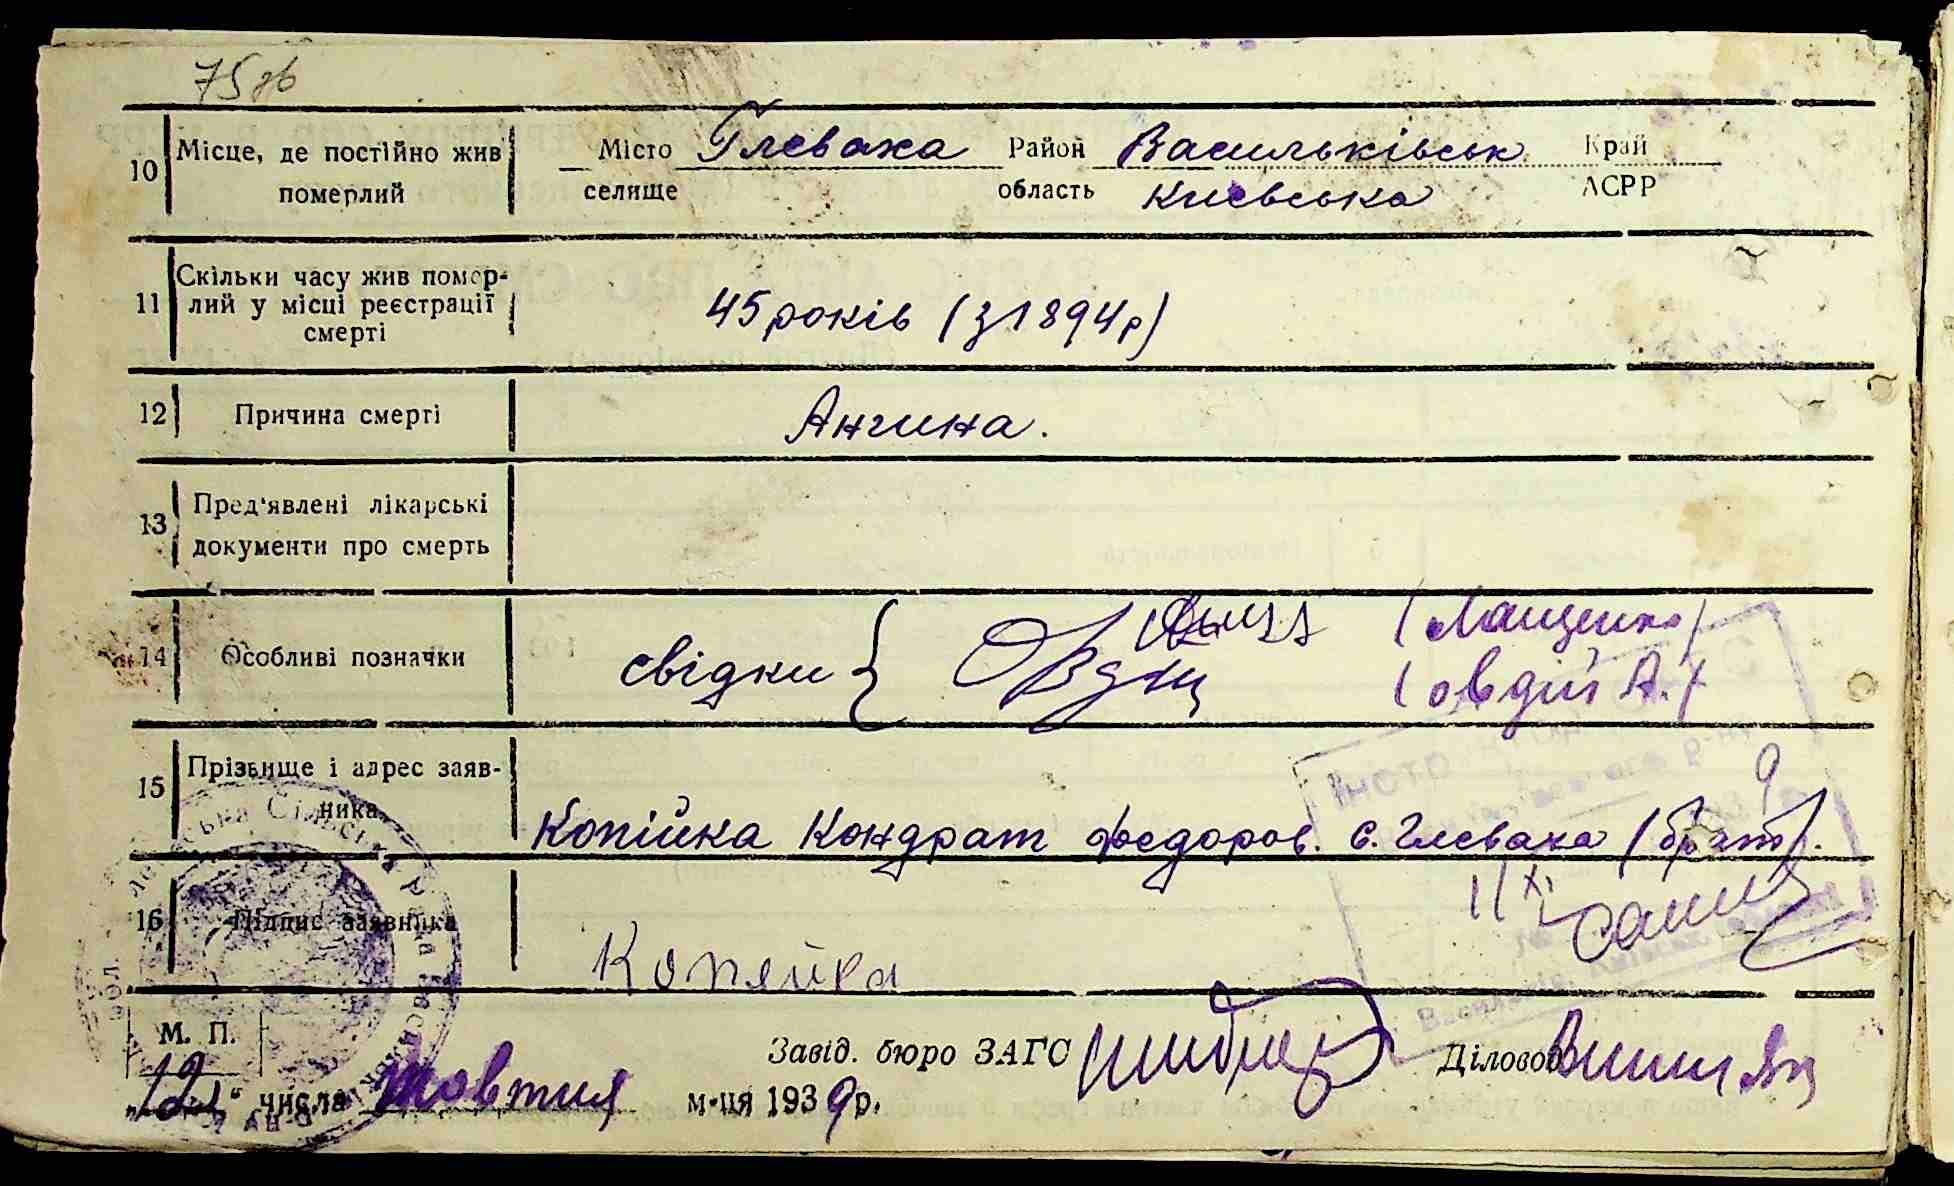 75зв
10 Місце, де постійно жив померлий
Місто Глеваха Район Васильківськ Край
селище область Київська АСРР
11 Скільки часу жив помер-
лий у місці реєстрації
смерті
45 років (з 1894р)
12 Причина смерті Ангина.
13 Пред'явлені лікарські
документи про смерть
14 Особливі позначки
свідки { (Лащенко)
Овдій (Овдій А.)
15 Прізвище і адрес заяв-
ника
Копійка Кондрат Федоров. с. Глеваха (брат).
16 Підпис заявника
Копяйка
М. П.
Завід. бюро ЗАГС Діловод
"12" числа Жовтня м-ця 1939р.